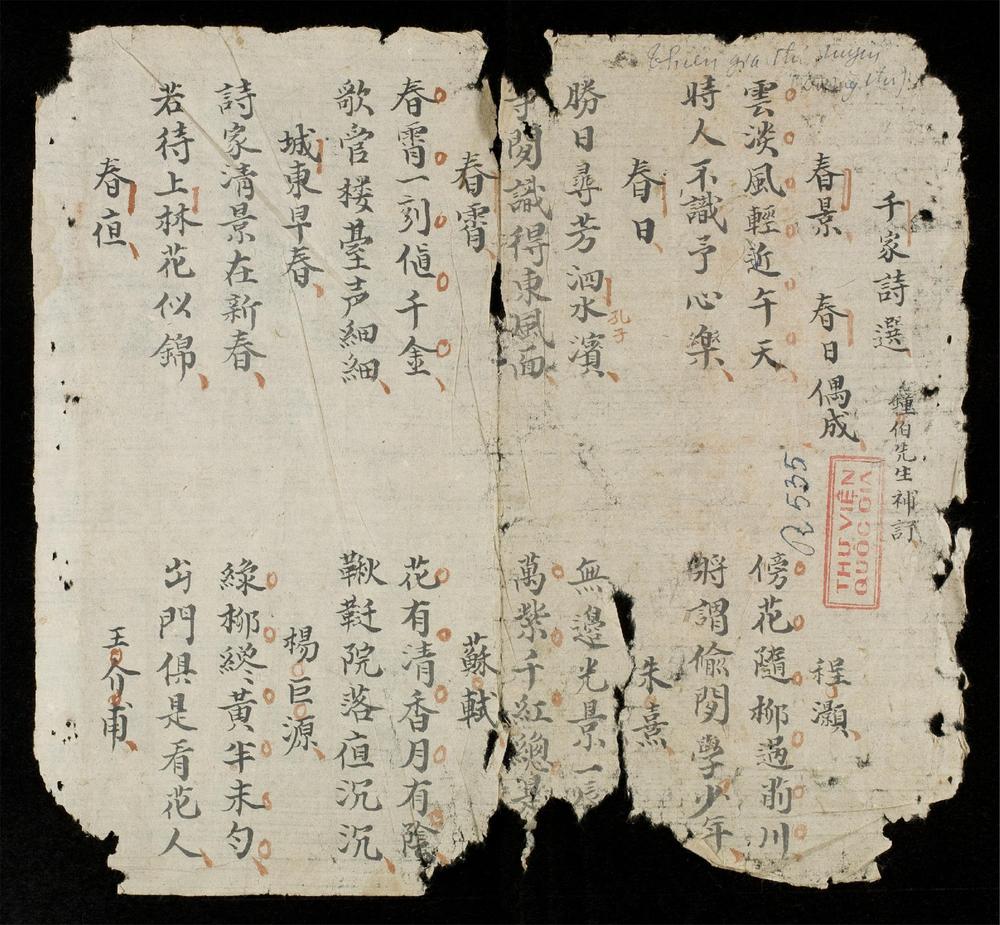 Thien gia thi tuyen
千家詩選 鐘伯先生補訂
THƯ VIỆN
QUỐC GIA
R 535
春景 春日偶成 程灝
雲淡風輕近午天 傍花隨柳過前川
時人不識予心樂 將謂偷閑學少年
春日 朱熹
勝日尋芳泗水濱 無邊光景一時
孔子
等閑識得東風面 萬紫千紅總是
春霄 蘇軾
春霄一刻值千金 花有清香月有陰
歌管楼臺声細細 鞦韆院落夜沉沉
城東早春 楊巨源
詩家清景在新春 綠柳纔黃半未勻
若待上林花似錦 出門俱是看花人
春夜 王介甫